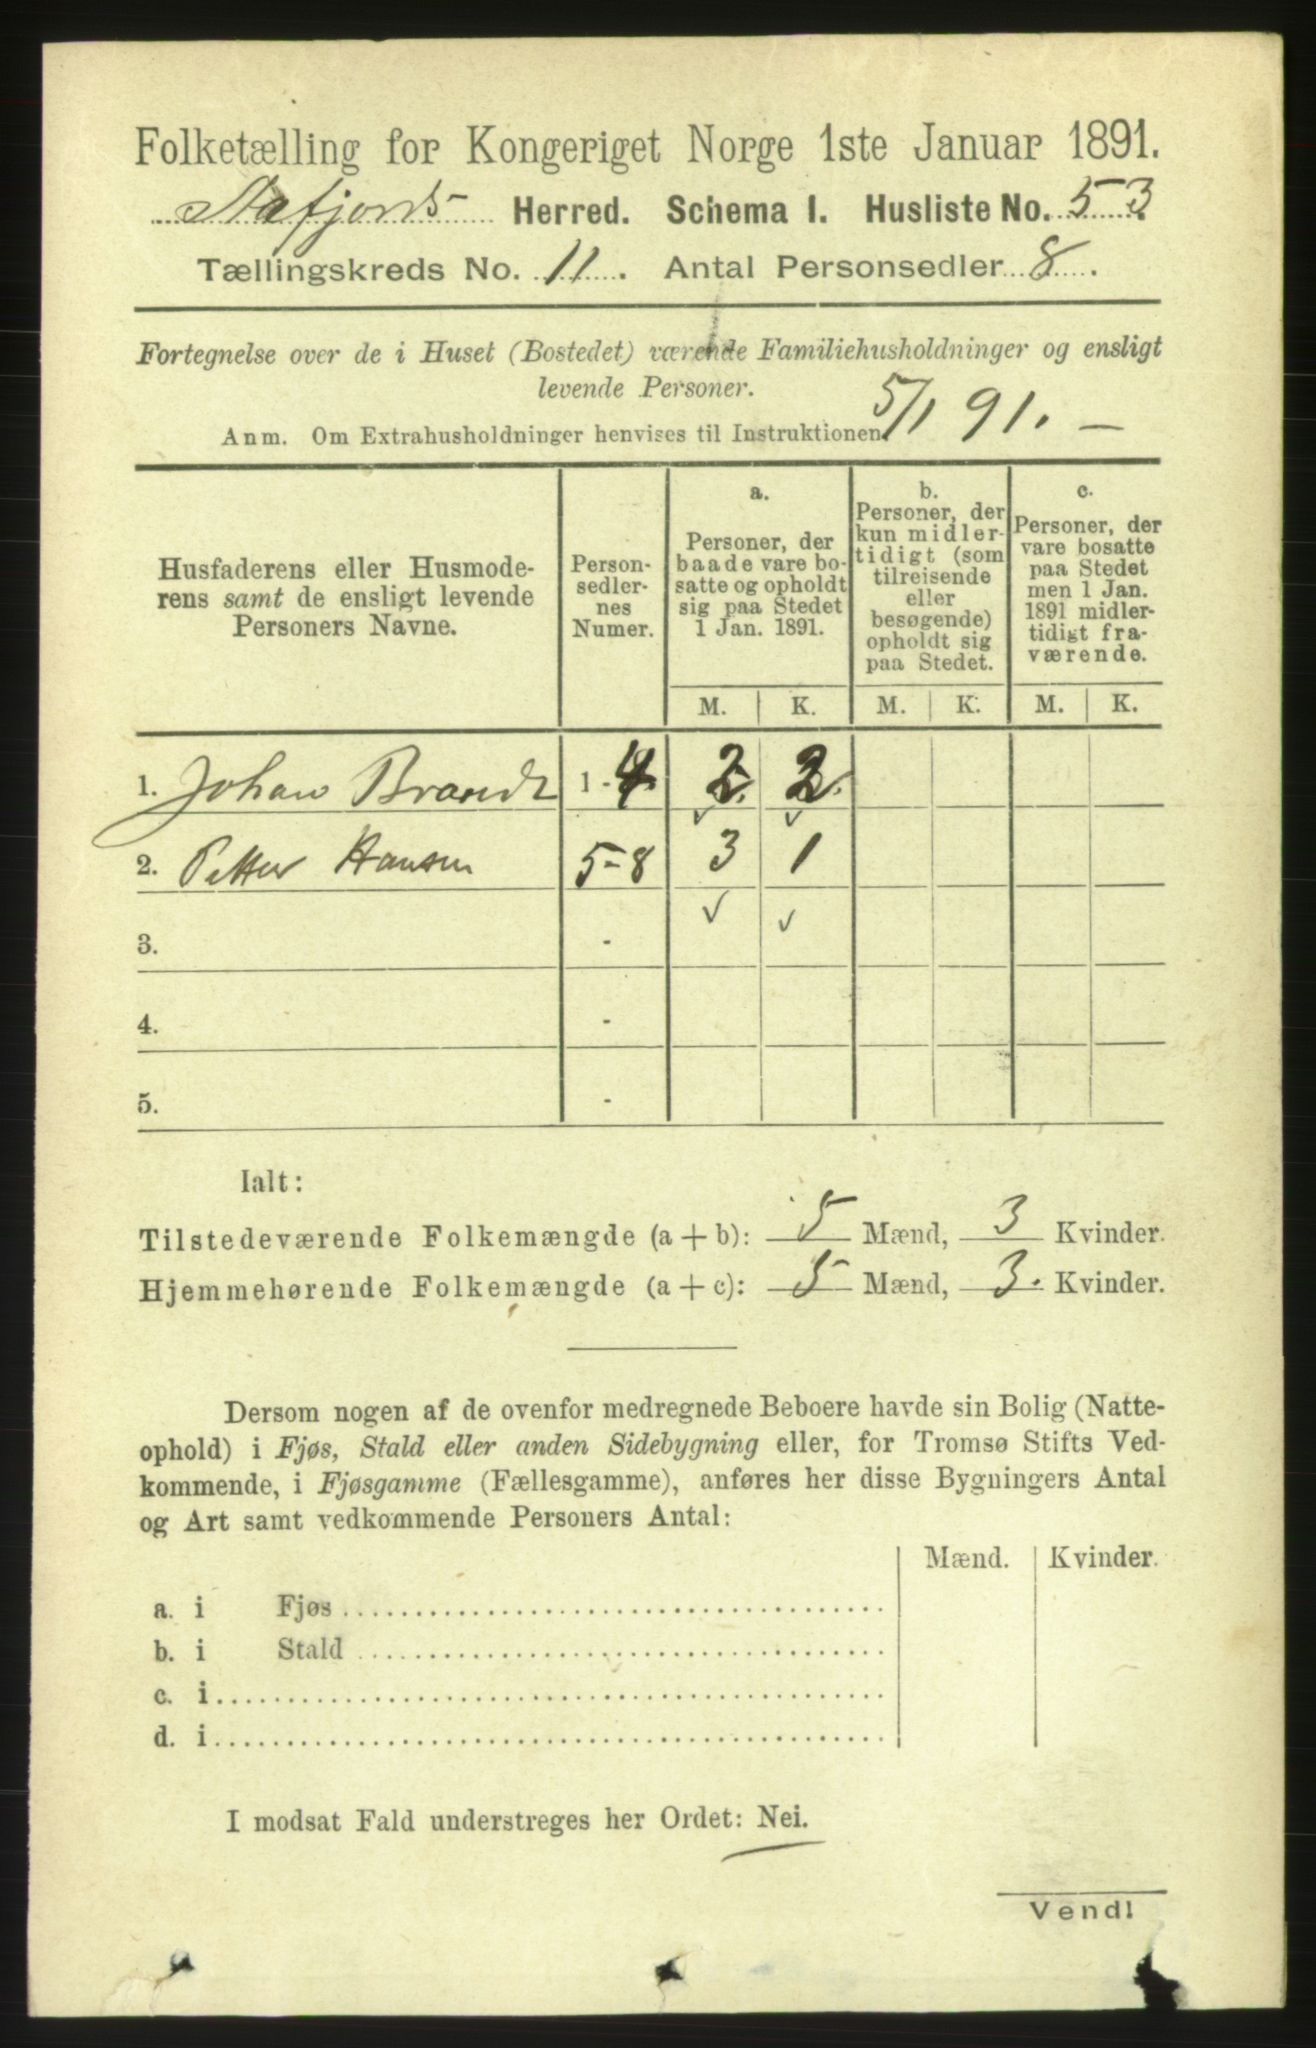 Folketælling for Kongeriget Norge 1ste Januar 1891.
Herred. Schema I. Husliste No. 53
Tællingskreds No. 11. Antal Personsedler 8.
Fortegnelse over de i Huset (Bostedet) værende Familiehusholdninger og ensligt
levende Personer.
5/1 91. —
Anm. Om Extrahusholdninger henvises til Instruktionen.
Husfaderens eller Husmode-
rens samt de ensligt levende
Personers Navne.
Person-
sedler-
nes
Numer.
a.
Personer, der
baade vare bo-
satte og opholdt
sig paa Stedet
1 Jan. 1891.
b.
Personer, der
kun midler-
tidigt (som
tilreisende
eller
besøgende)
opholdt sig
paa Stedet.
c.
Personer, der
vare bosatte
paa Stedet
men 1 Jan.
1891 midler-
tidigt fra-
værende.
M. K. M. K. M. K.
1. Johan Brandt 1 - 4 2 2
2. Petter Hansen 5-8 3 1
3. -
4. -
5. -
Ialt:
Tilstedeværende Folkemængde (a + b): 5 Mænd, 3 Kvinder.
Hjemmehørende Folkemængde (a + c): 5 Mænd, 3. Kvinder.
Dersom nogen af de ovenfor medregnede Beboere havde sin Bolig (Natte-
ophold) i Fjøs, Stald eller anden Sidebygning eller, for Tromsø Stifts Ved-
kommende, i Fjøsgamme (Fællesgamme), anføres her disse Bygningers Antal
og Art samt vedkommende Personers Antal:
Mænd. Kvinder.
a. i Fjøs
b. i Stald
c. i
d. i
I modsat Fald understreges her Ordet: Nei.
Vend!